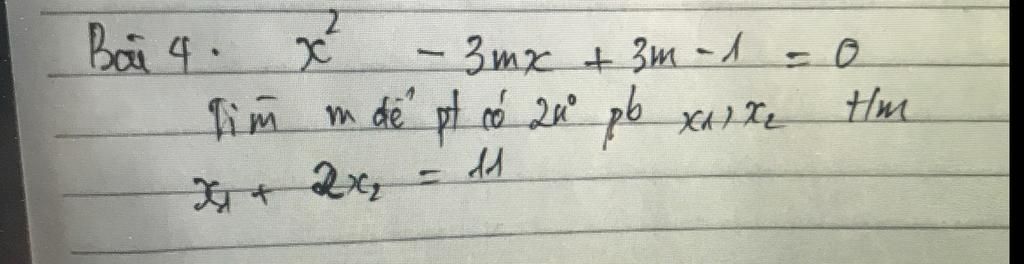 Bài 4. x² - 3mx + 3m - 1 = 0
Tìm m để pt có 2n⁰ pb x₁, x₂ t/m
x₁ + 2x₂ = 11